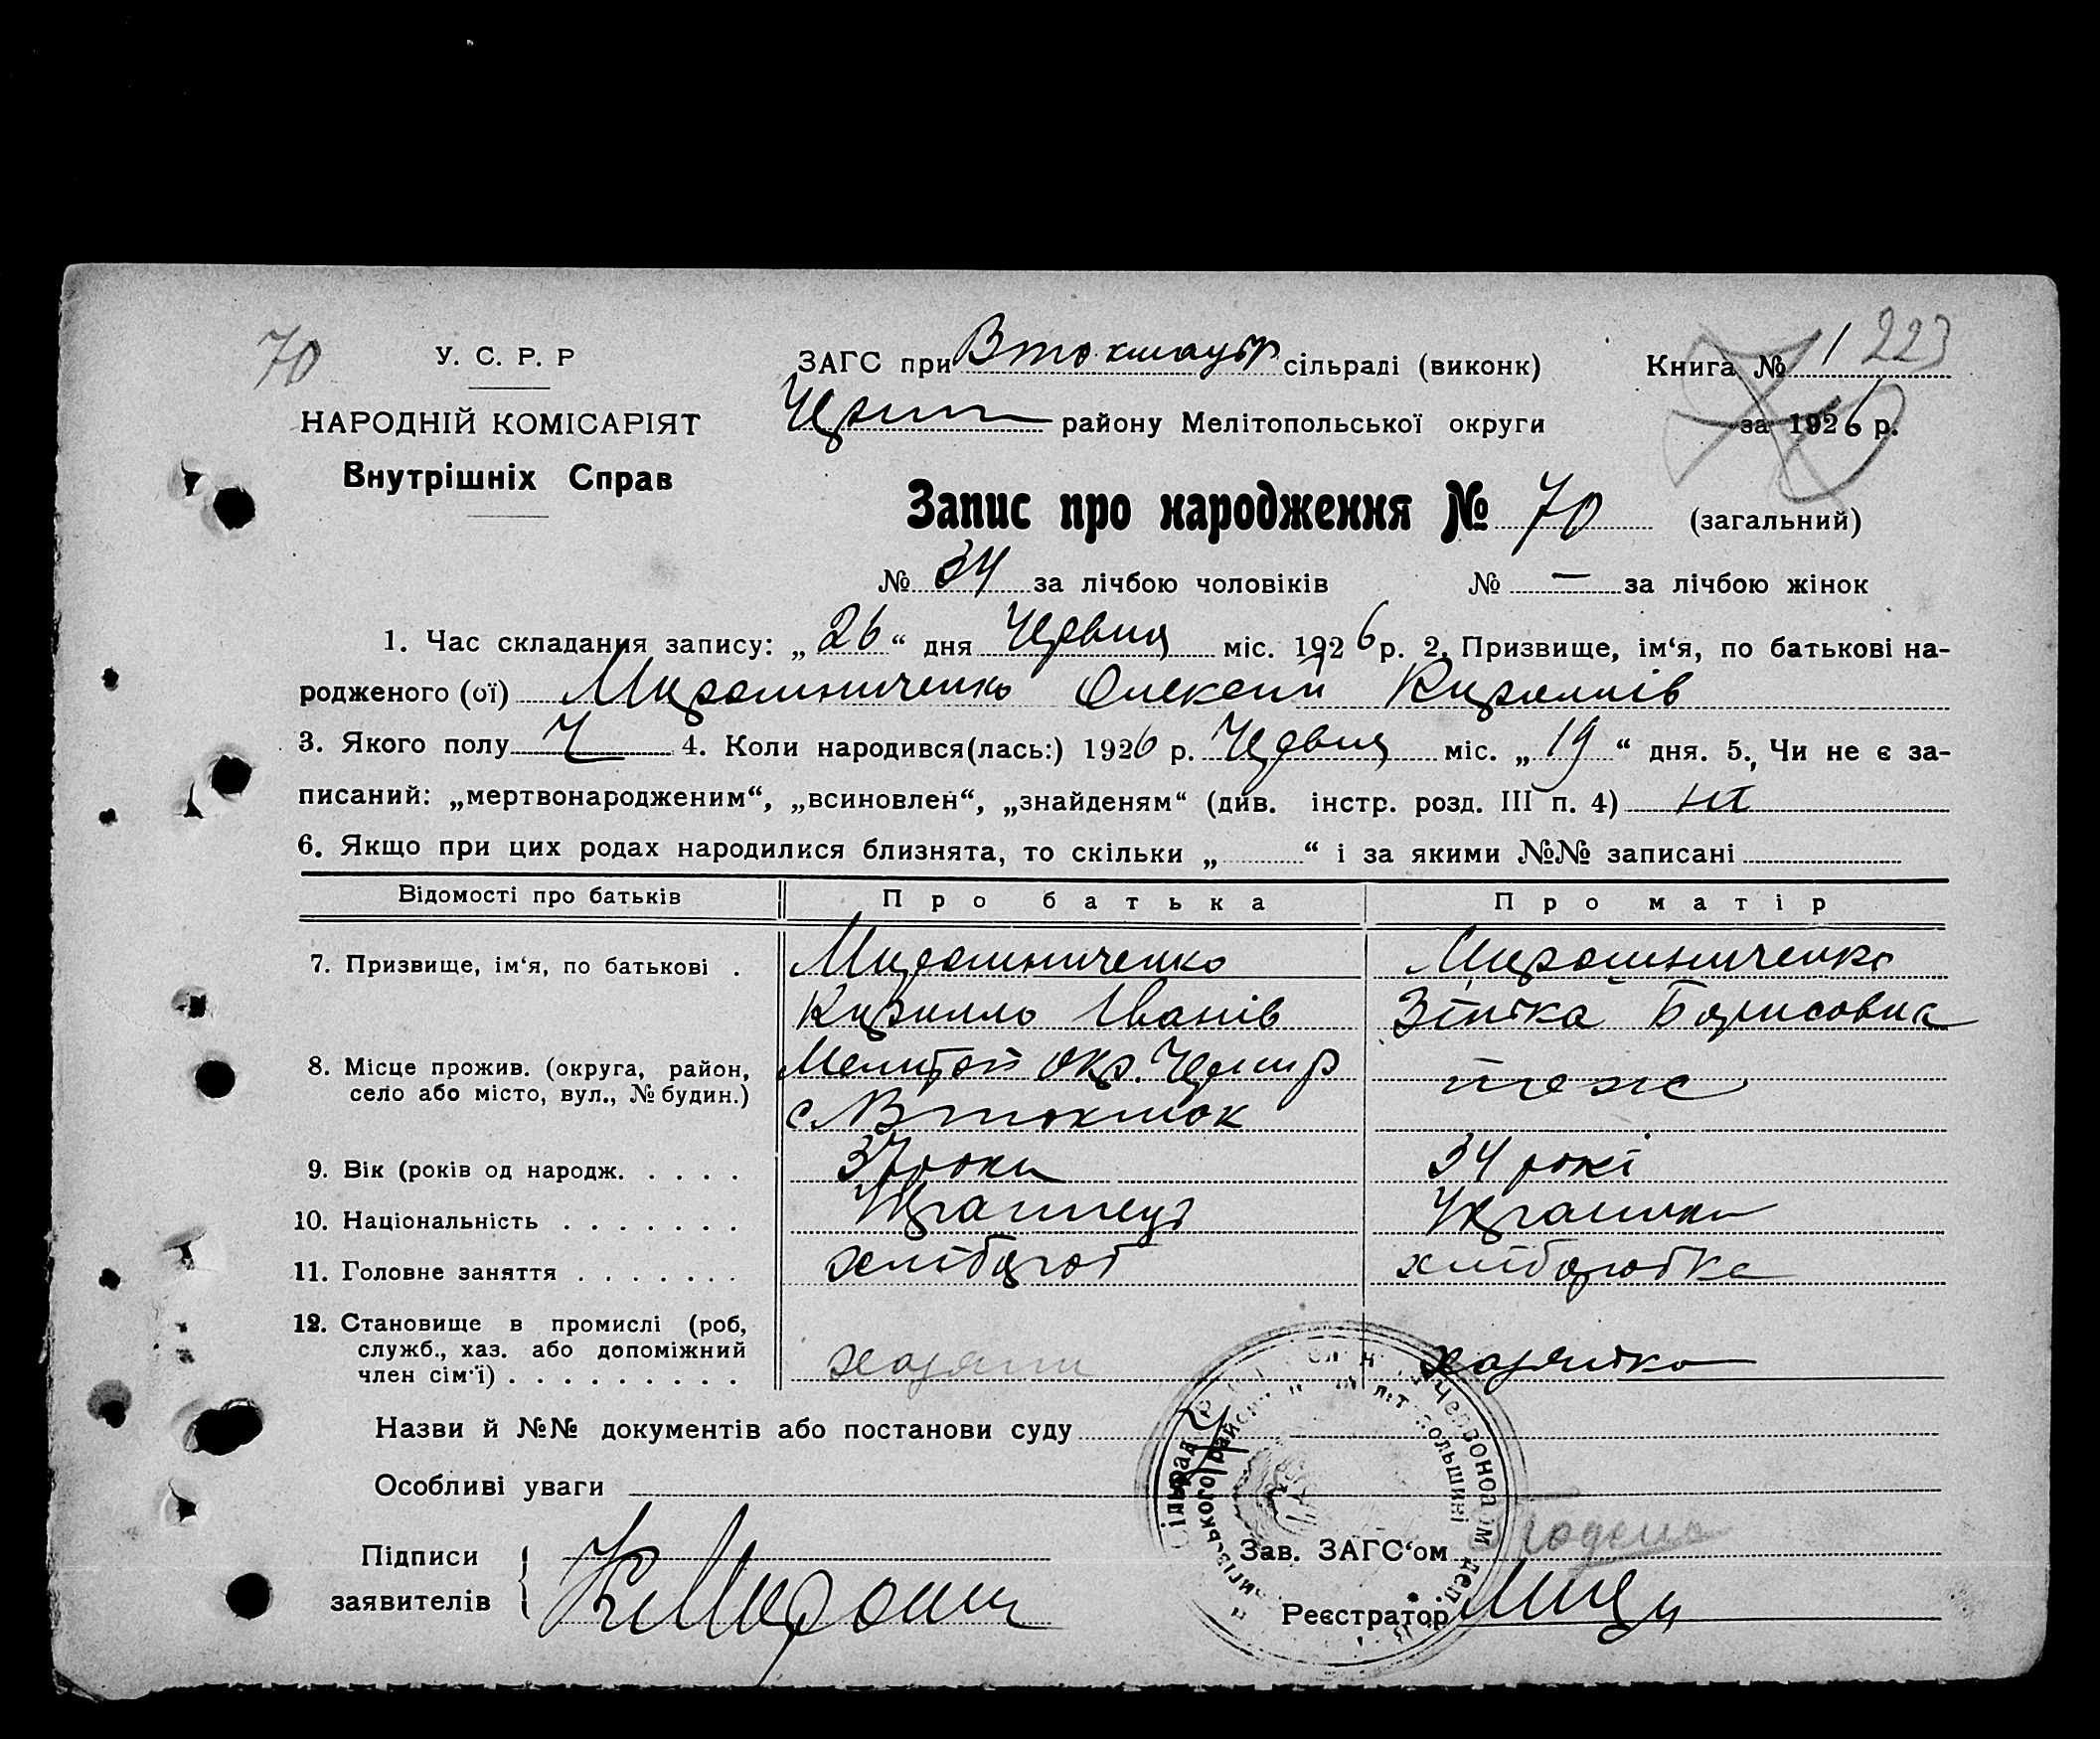 70
У. С. Р. Р
НАРОДНІЙ КОМІСАРІЯТ
Внутрішніх Справ
ЗАГС при Втокмацьр сільраді (виконк)
району Мелітопольської округи
Книга № 1 223
за 1926 р.
Запис про народження № 70 (загальний)
№ 34 за лічбою чоловіків № — за лічбою жінок
1. Час складання запису: „26“ дня Червня міс. 1926 р. 2. Призвище, ім‘я, по батькові на-
родженого (ої) Мирошниченко Олексій Кирилів
3. Якого полу Ч 4. Коли народився(лась:) 1926 р. Червня міс. „19“ дня. 5. Чи не є за-
писаний: „мертвонародженим“, „всиновлен“, „знайденям“ (див. інстр. розд. III п. 4) ні
6. Якщо при цих родах народилися близнята, то скільки „ “ і за якими №№ записані
Відомості про батьків Про батька Про матір
7. Призвище, ім‘я, по батькові . Мирошниченко Мирошниченко
Кирилло Іванів Борисовна
8. Місце прожив. (округа, район, Мелітоп окр. теж
село або місто, вул., № будин.) с Втокмак
9. Вік (років од народж. . . . . 37 роки 34 рокі
10. Національність . . . . . . . Українець Українка
11. Головне заняття . . . . . . . хлібороб хліборобка
12. Становище в промислі (роб,
служб., хаз. або допоміжний
член сім‘ї) . . . . . . . . . хазяїн хазяйка
Назви й №№ документів або постанови суду
Особливі уваги
Підписи
заявителів К Мирошн
Зав. ЗАГС‘ом
Реєстратор